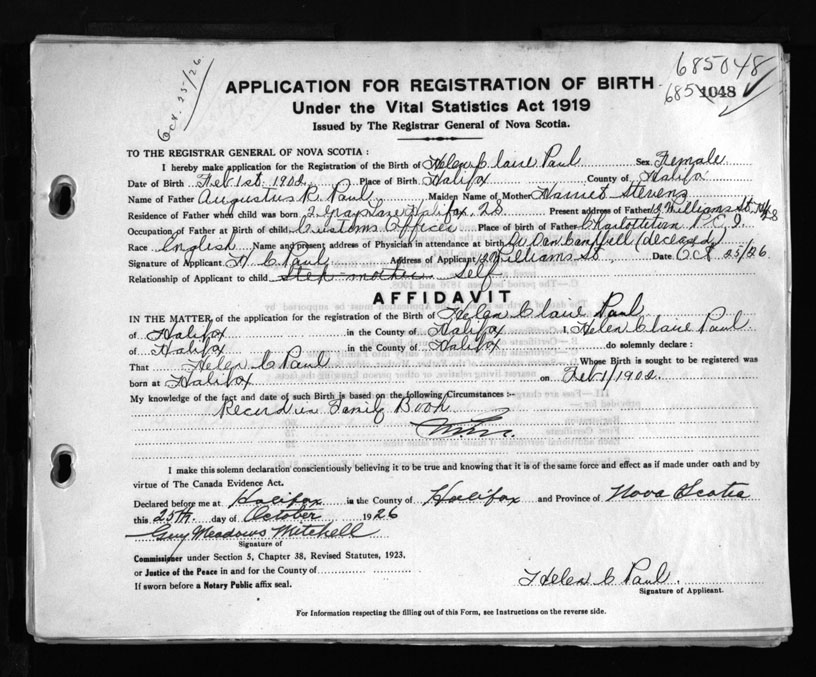 Oct. 25/26
685048
APPLICATION FOR REGISTRATION OF BIRTH
685 1048
Under the Vital Statistics Act 1919
Issued by The Registrar General of Nova Scotia.
TO THE REGISTRAR GENERAL OF NOVA SCOTIA:
I hereby make application for the Registration of the Birth of Helen Claire Paul Sex Female
Date of Birth Feb 1st. 1902 Place of Birth Halifax County of Halifax
Name of Father Augustus R. Paul Maiden Name of Mother Harriet Stevens
Residence of Father when child was born Halifax, N.S. Present address of Father Williams St.
Occupation of Father at Birth of child Customs Officer Place of birth of Father Charlottetown P.E.I.
Race English Name and present address of Physician in attendance at birth Dr. Dan Campbell (deceased)
Signature of Applicant H C Paul Address of Applicant Williams St. Date Oct 25/26.
Relationship of Applicant to child Step-mother Self
AFFIDAVIT
IN THE MATTER of the application for the registration of the Birth of Helen Claire Paul
of Halifax in the County of Halifax I, Helen Claire Paul
of Halifax in the County of Halifax do solemnly declare:
That Helen C Paul Whose Birth is sought to be registered was
born at Halifax on Feb 1/1902.
My knowledge of the fact and date of such Birth is based on the following Circumstances:-
Record in Family Book
I make this solemn declaration conscientiously believing it to be true and knowing that it is of the same force and effect as if made under oath and by
virtue of The Canada Evidence Act.
Declared before me at Halifax in the County of Halifax and Province of Nova Scotia
this 25th. day of October 1926
Guy Meadows Mitchell
Signature of
Commissioner under Section 5, Chapter 38, Revised Statutes, 1923.
or Justice of the Peace in and for the County of
If sworn before a Notary Public affix seal.
Helen C Paul.
Signature of Applicant.
For Information respecting the filling out of this Form, see Instructions on the reverse side.